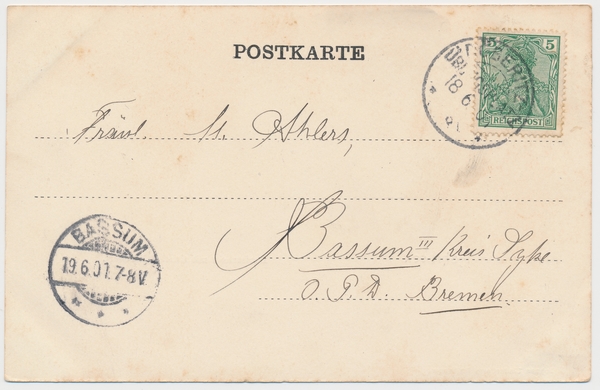 POSTKARTE
5 5
REICHSPOST
18 6
Fräul. M. Ahlers,
Bassum III Kreis Syke
O. P. D. Bremen.
BASSUM
19.6.01.7-8V.